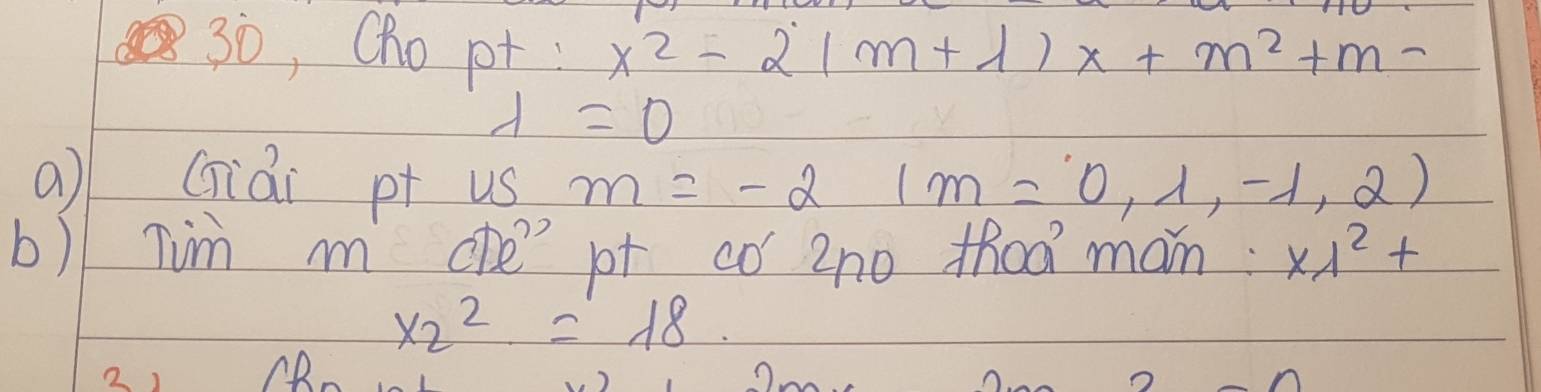 30, Cho pt : x² - 2(m+1)x + m² + m -
1 = 0
a) Giải pt vs m = -2 (m = 0, 1, -1, 2)
b) Tìm m để pt có 2no thoả mãn : x1² +
x2² = 18.